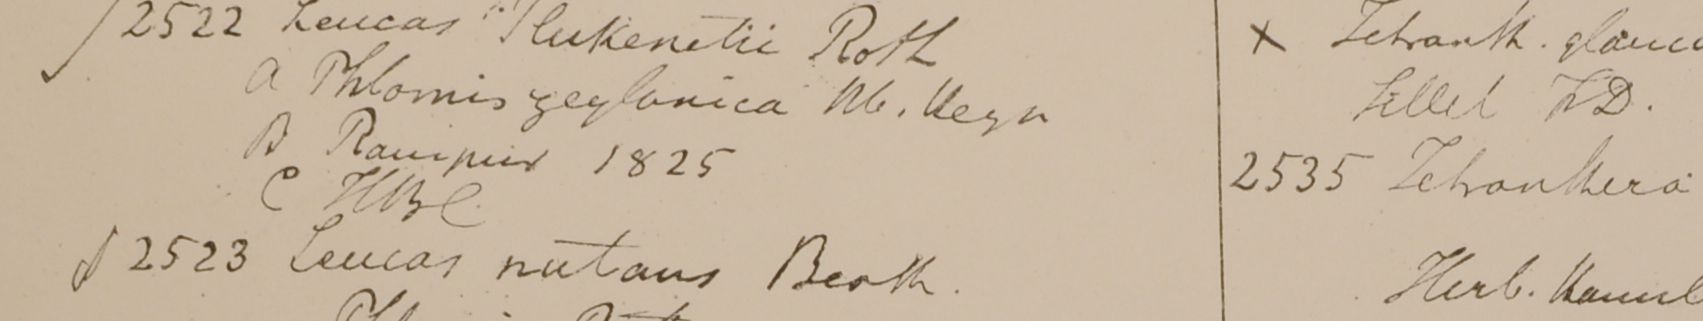 2522 Leucas Plukenetii Roth
A Phlomis zeylanica Mb. Heyn
B Raujpur 1825
C HBC
2523 Leucas nutans Benth.
x Tetranth. glauca
Sillet FD.
2535 Tetranthera
Herb.